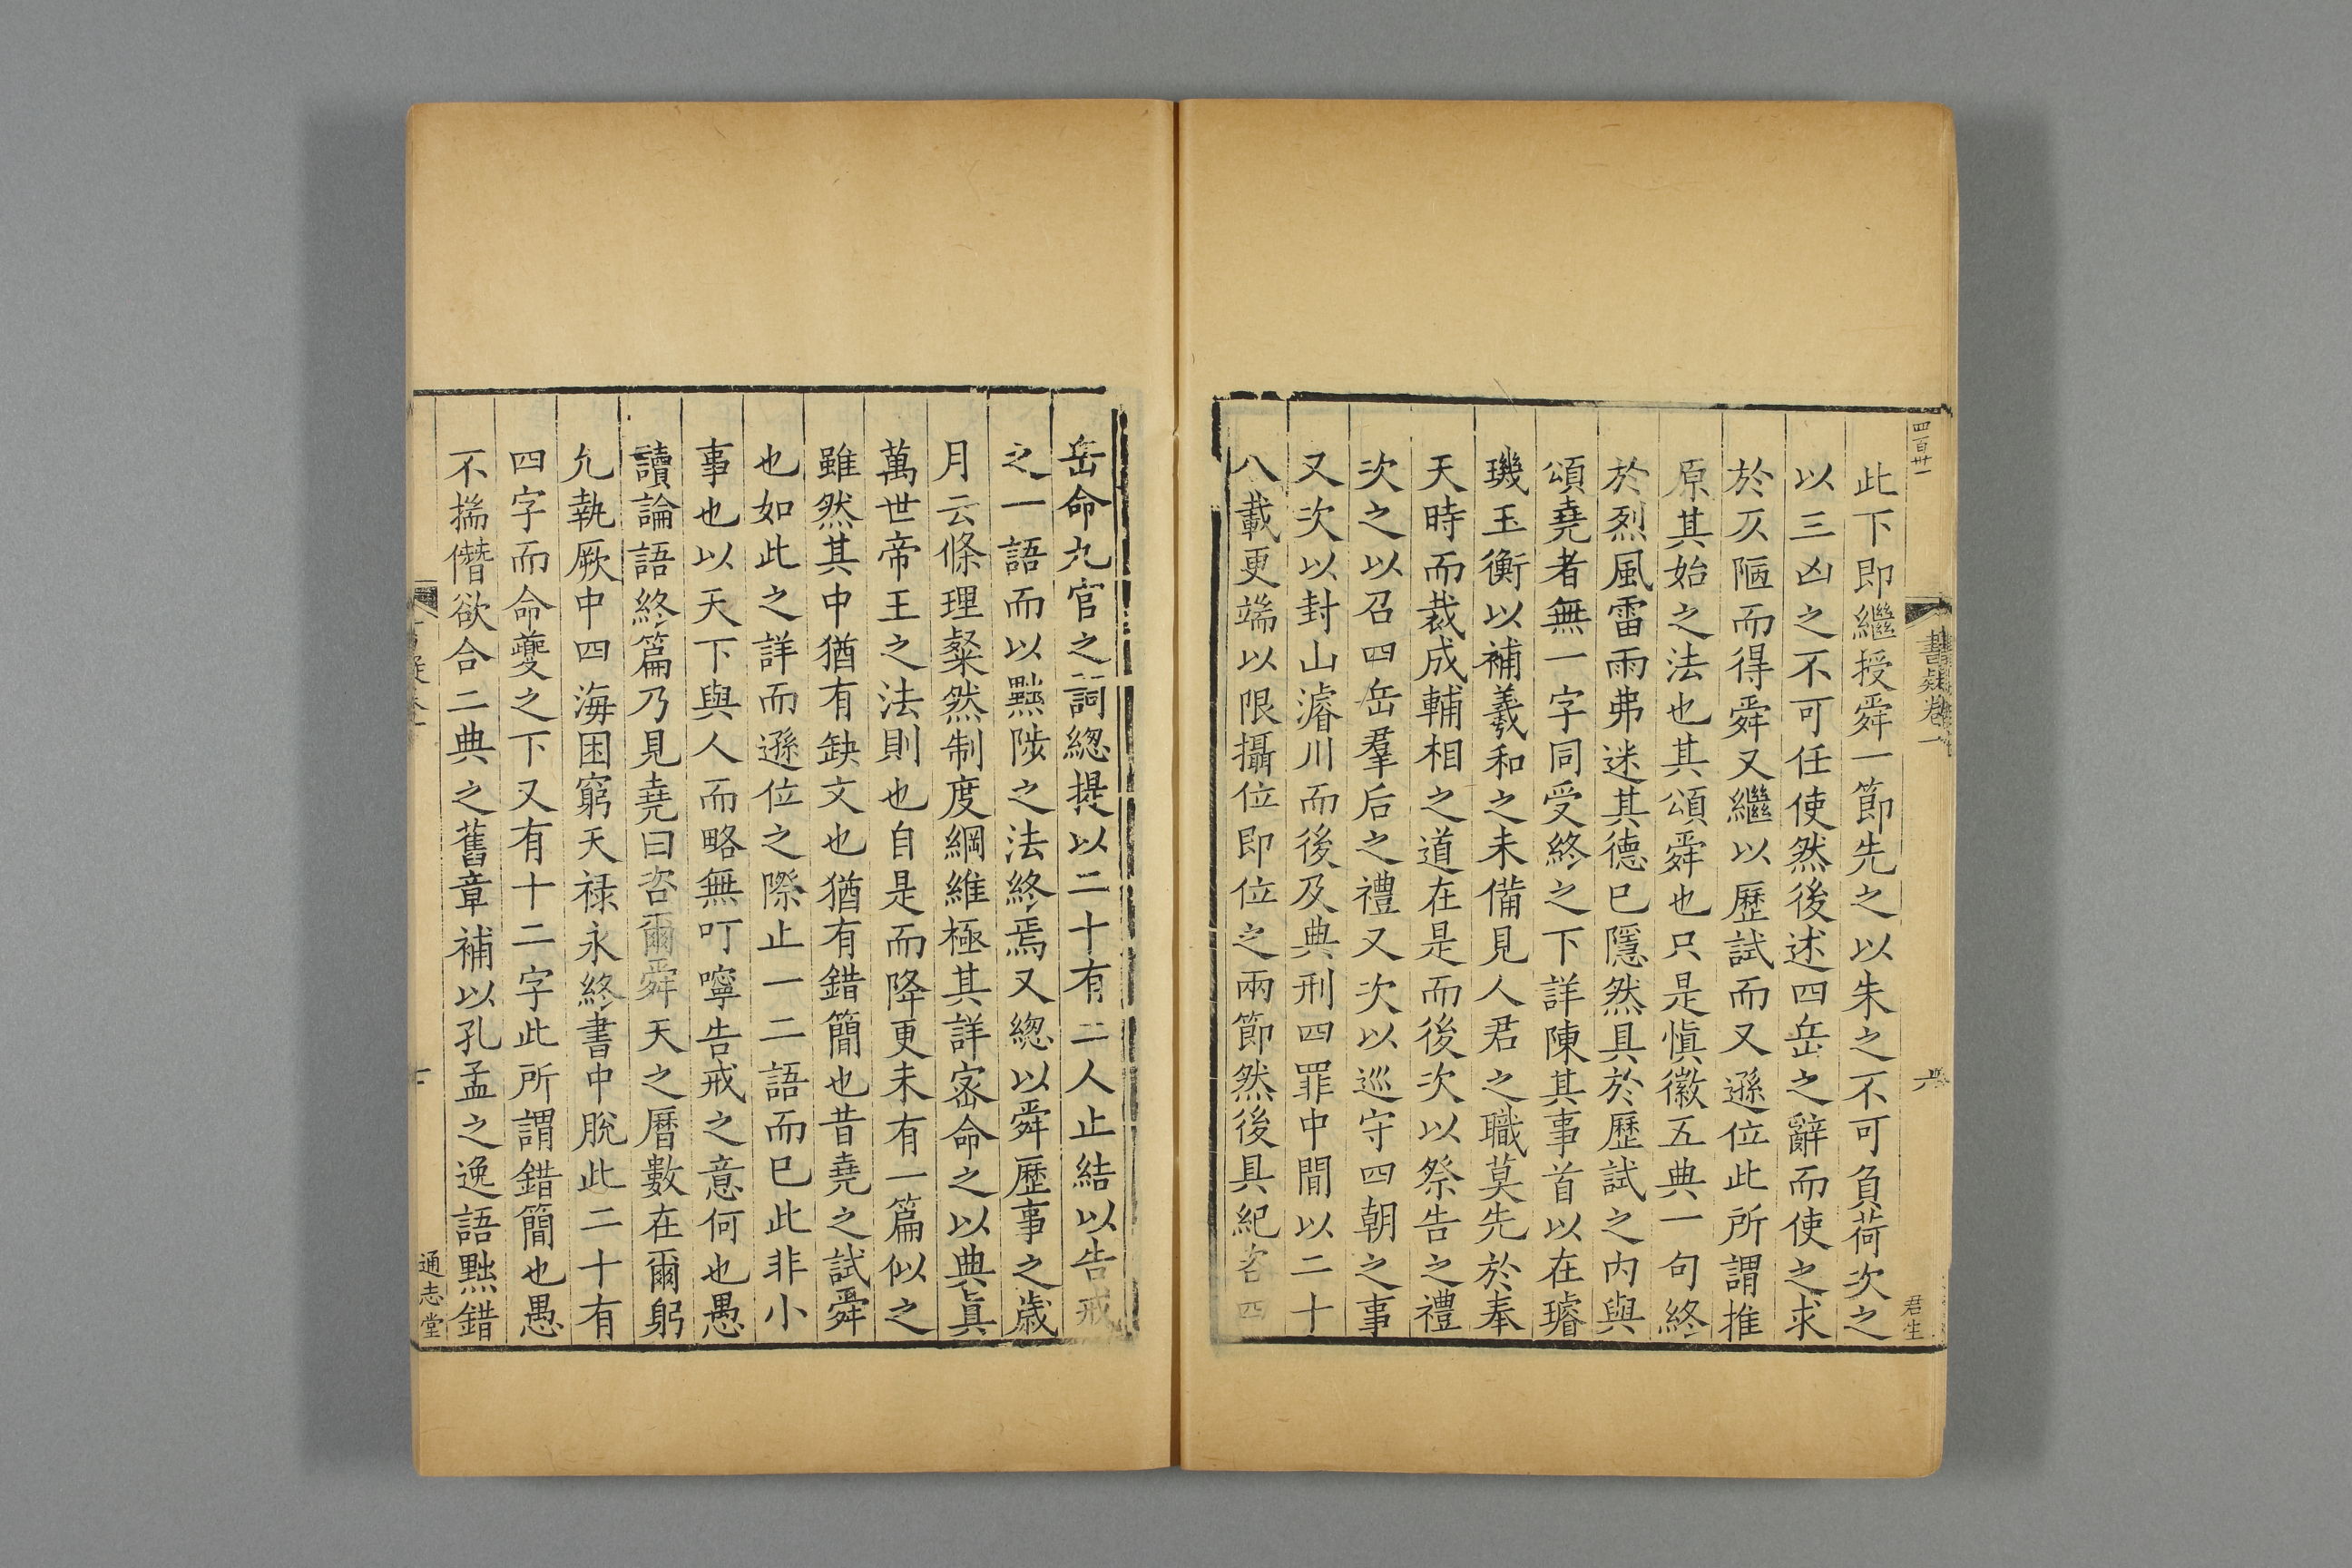 四百卅一
書疑卷一
六
君生
此下即繼授舜一節先之以朱之不可負荷次之
以三凶之不可任使然後述四岳之辭而使之求
於仄陋而得舜又繼以歷試而又遜位此所謂推
原其始之法也其頌舜也只是慎徽五典一句終
於烈風雷雨弗迷其德已隱然具於歷試之内與
頌堯者無一字同受終之下詳陳其事首以在璿
璣玉衡以補羲和之未備見人君之職莫先於奉
天時而裁成輔相之道在是而後次以祭告之禮
次之以召四岳羣后之禮又次以巡守四朝之事
又次以封山濬川而後及典刑四罪中間以二十
八載更端以限攝位即位之兩節然後具紀咨四
岳命九官之詞緫提以二十有二人止結以告戒
之一語而以黜陟之法終焉又緫以舜歷事之歲
月云條理粲然制度綱維極其詳宻命之以典真
萬世帝王之法則也自是而降更未有一篇似之
雖然其中猶有缺文也猶有錯簡也昔堯之試舜
也如此之詳而遜位之際止一二語而已此非小
事也以天下與人而略無叮嚀告戒之意何也愚
讀論語終篇乃見堯曰咨爾舜天之曆數在爾躬
允執厥中四海困窮天禄永終書中脫此二十有
四字而命夔之下又有十二字此所謂錯簡也愚
不揣僭欲合二典之舊章補以孔孟之逸語黜錯
通志堂